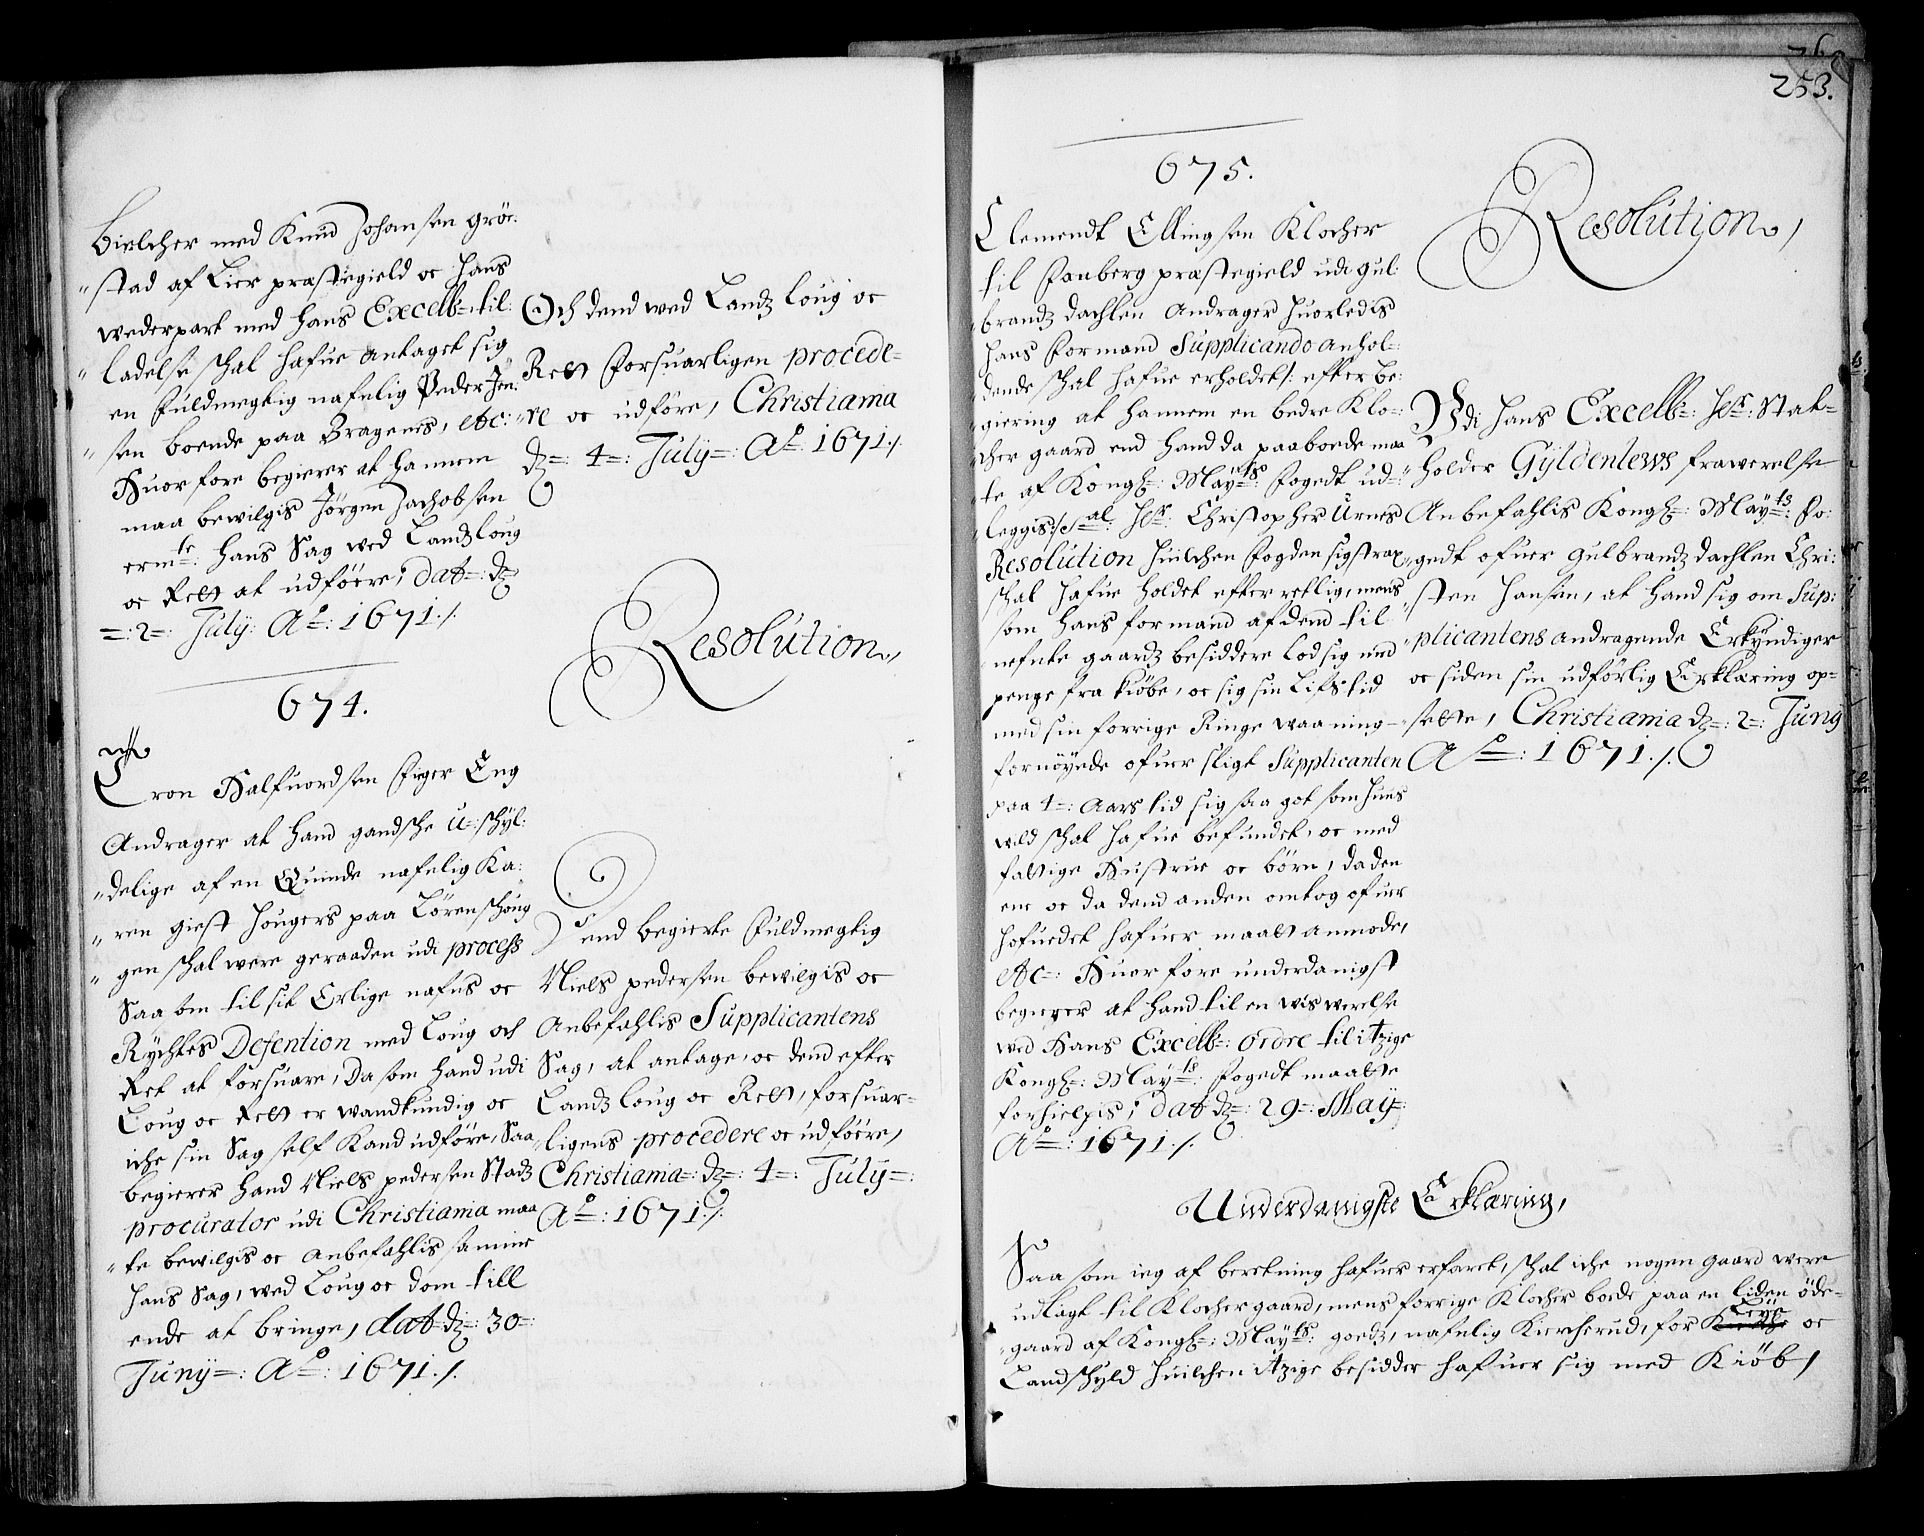 Bielcher med Knud Johansen Grøe:
"stad af Lier præstegield oc hans
wederpart med hans Excell: til:
"ladelse schal hafue antaget sig
en fuldmegtig nafnlig Peder Jen:
"sen boende paa Bragenes, etc:
Huorfore begierer at hannem
maa bewilgis Jørgen Jachobsen
ermte: hans Sag wed Landzloug
oc Rett at udføere; dat: dz
=:2=: July: Ao: 1671./.
Och dend wed Landz loug oc
Rett forsuarligen procede=
"re oc udføre, Christiania
dz=: 4=: July=: Ao: 1671./.
674.
Tron Halfuordsen Eng
Andrager at hand gandsche U=:schyl:
"delige af en Quinde nafnlig Ka:
"ren giest Hougers paa Lørenschoug
"gen schal were geraaden udi process
Saa som til sit Erlige nafns oc
Rychtes Defention med Loug och
Ret at forsuare, Da som hand udi
Loug oc Rett er wandkundig oc
iche sin Sag self kand udføre, Saa
begierer hand Niels pedersen Stadz
procurator udi Christiania maa
"te bewilgis oc Anbefahlis samme
hans Sag, wed Loug oc dom till
ende at bringe, dat dz=: 30=:
Juny=: Ao=: 1671./.
Resolution,
Dend begierte fuldmegtig
Niels pedersen bewilgis oc
Anbefahlis Supplicantens
Sag, at antage, oc dend efter
Landz loug oc Rett, forsuar=
"ligens procedere oc udføere,
Christiania=: dz=: 4=: July=:
Ao=: 1671./.
253.
675.
Clemendt Ellingsen Klocher
til Faaberg præstegield udi gul:
"brandz dachlen Andrager huorledis
hans formand Supplicando anhol=:
"dende schal hafue erholdet/: efter be:
"giering at hannem en bedre Klo=:
"cher gaard end hand da paaboede maa
"te af Kongl=: Mayts: fogedt ud=:
"leggis:/ Sal: Hr: Christopher Urnes
Resolution huilchen fogden sig strax
schal hafue holdet efterretlig, mens
som hans formand af dend til
nefnte gaardz besiddere lod sig med
penge fra kiøbe, oc sig sin Lifs tid
med sin forrige Ringe waaning
fornøyede ofuer sligt Supplicanten
paa 4=: Aars tid sig saa got som huus
wild schal hafue befundet, oc med
fattige Hustrue oc børn, da den
ene oc da dend anden omtog ofuer
hofuedet hafuer maatt anmode,
etc=: Huorfore underdanigst
begierer at hand til en wis werelse
wed Hans Excell=: ordre til itzige
Kongl=: Mayts=: fogedt maatte
forhielpis; dat dz=: 29=: May=:
Ao=: 1671./.
Resolution,
Udi Hans Excell=: Hr: Stat=
"holder Gyldenlews frawerelse
Anbefahlis Kongl=: Mayts: fo:
"gedt ofuer gulbrandz dachlen Chri:
"sten Hansen, at hand sig om Sup:
"plicantens andragende Erkyndiger
oc siden sin udførlig Erklæring op=
"sette, Christiania dz=: 2=: Juny
Ao=: 1671./.
Underdanigste Erklæring,
Saa som ieg af beretning hafuer erfaret, schal iche nogen gaard were
udlagt til Klochergaard, mens forrige Klocher boede paa en liden øde=
"gaard af Kongl=: Mayts: goedz, nafnlig Kiercherud, for Leye oc
Landschyld huilchen itzige besidder hafuer sig med Kiøb,